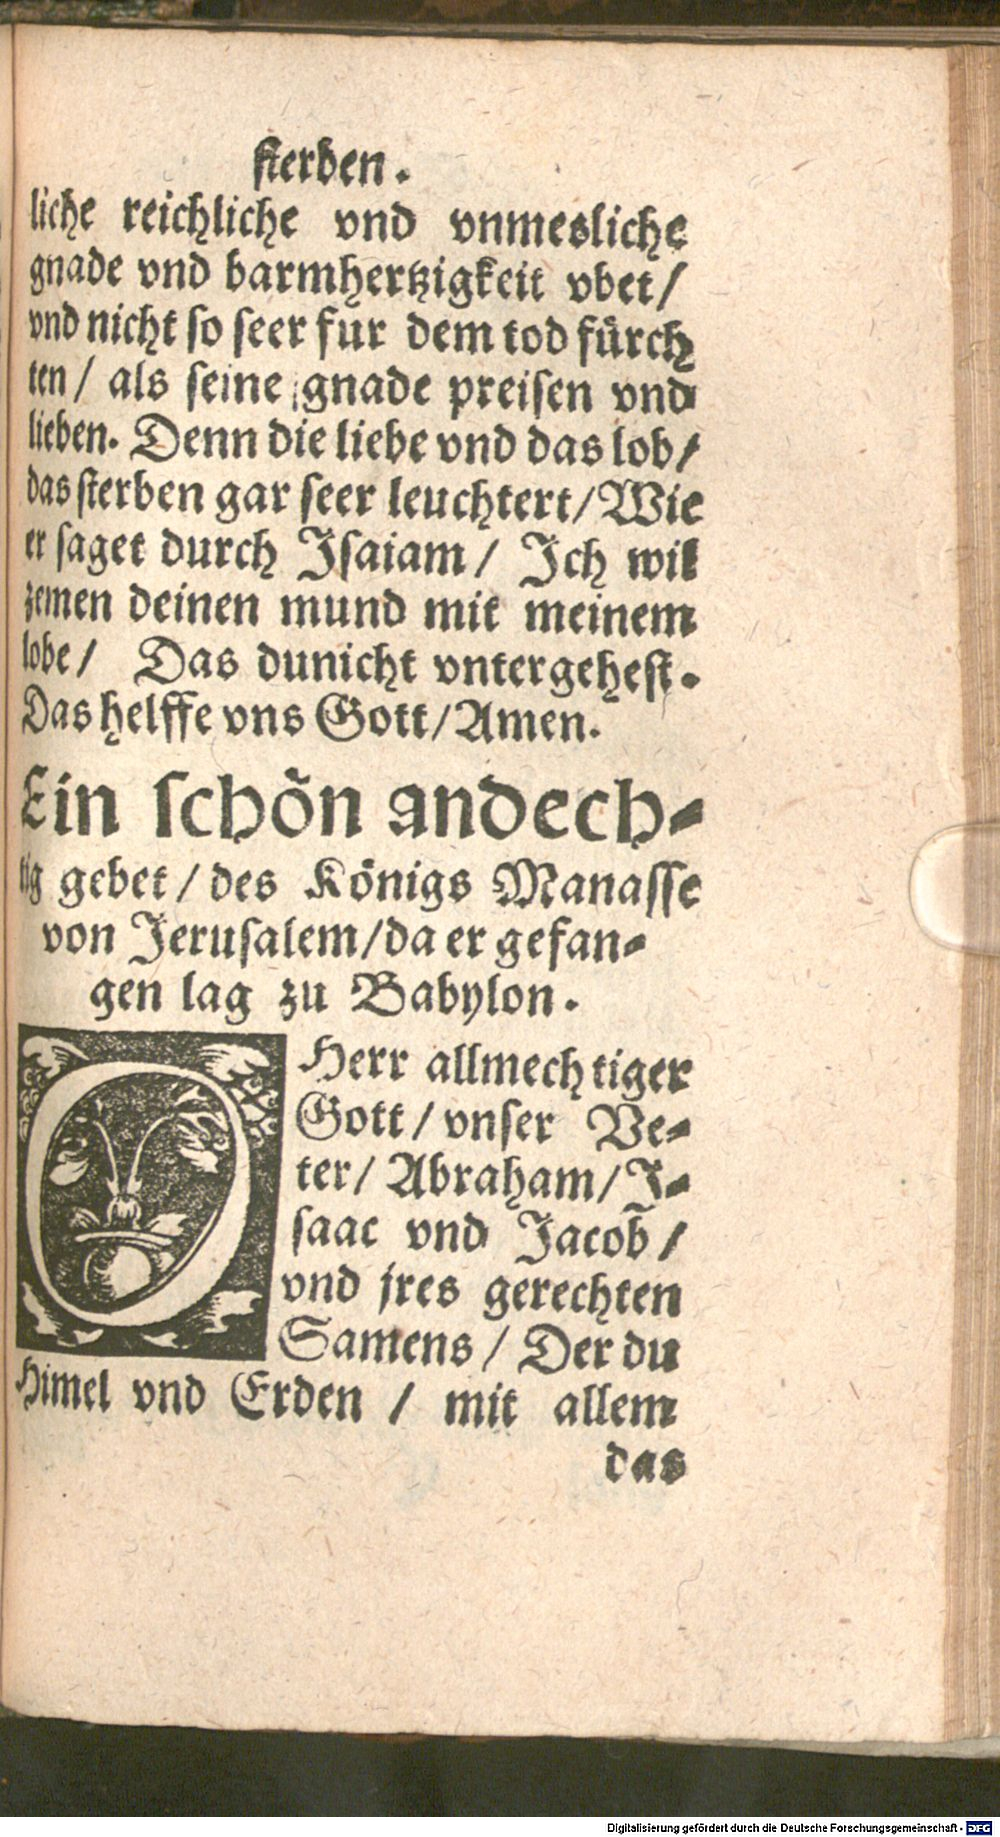 sterben.
liche reichliche vnd vnmesliche
gnade vnd barmhertzigkeit vbet/
vnd nicht so seer fur dem tod fürch
ten/ als seine gnade preisen vnd
lieben. Denn die liebe vnd das lob/
das sterben gar seer leuchtert/ Wie
er saget durch Isaiam/ Ich wil
zemen deinen mund mit meinem
lobe/ Das du nicht vntergehest.
Das helffe vns Gott/ Amen.
Ein schön andech-
tig gebet/ des Königs Manasse
von Jerusalem/ da er gefan-
gen lag zu Babylon.
O Herr allmechtiger
Gott/ vnser Ve-
ter/ Abraham/ I-
saac vnd Jacob/
vnd jres gerechten
Samens/ Der du
Himel vnd Erden/ mit allem
das
Digitalisierung gefördert durch die Deutsche Forschungsgemeinschaft - DFG